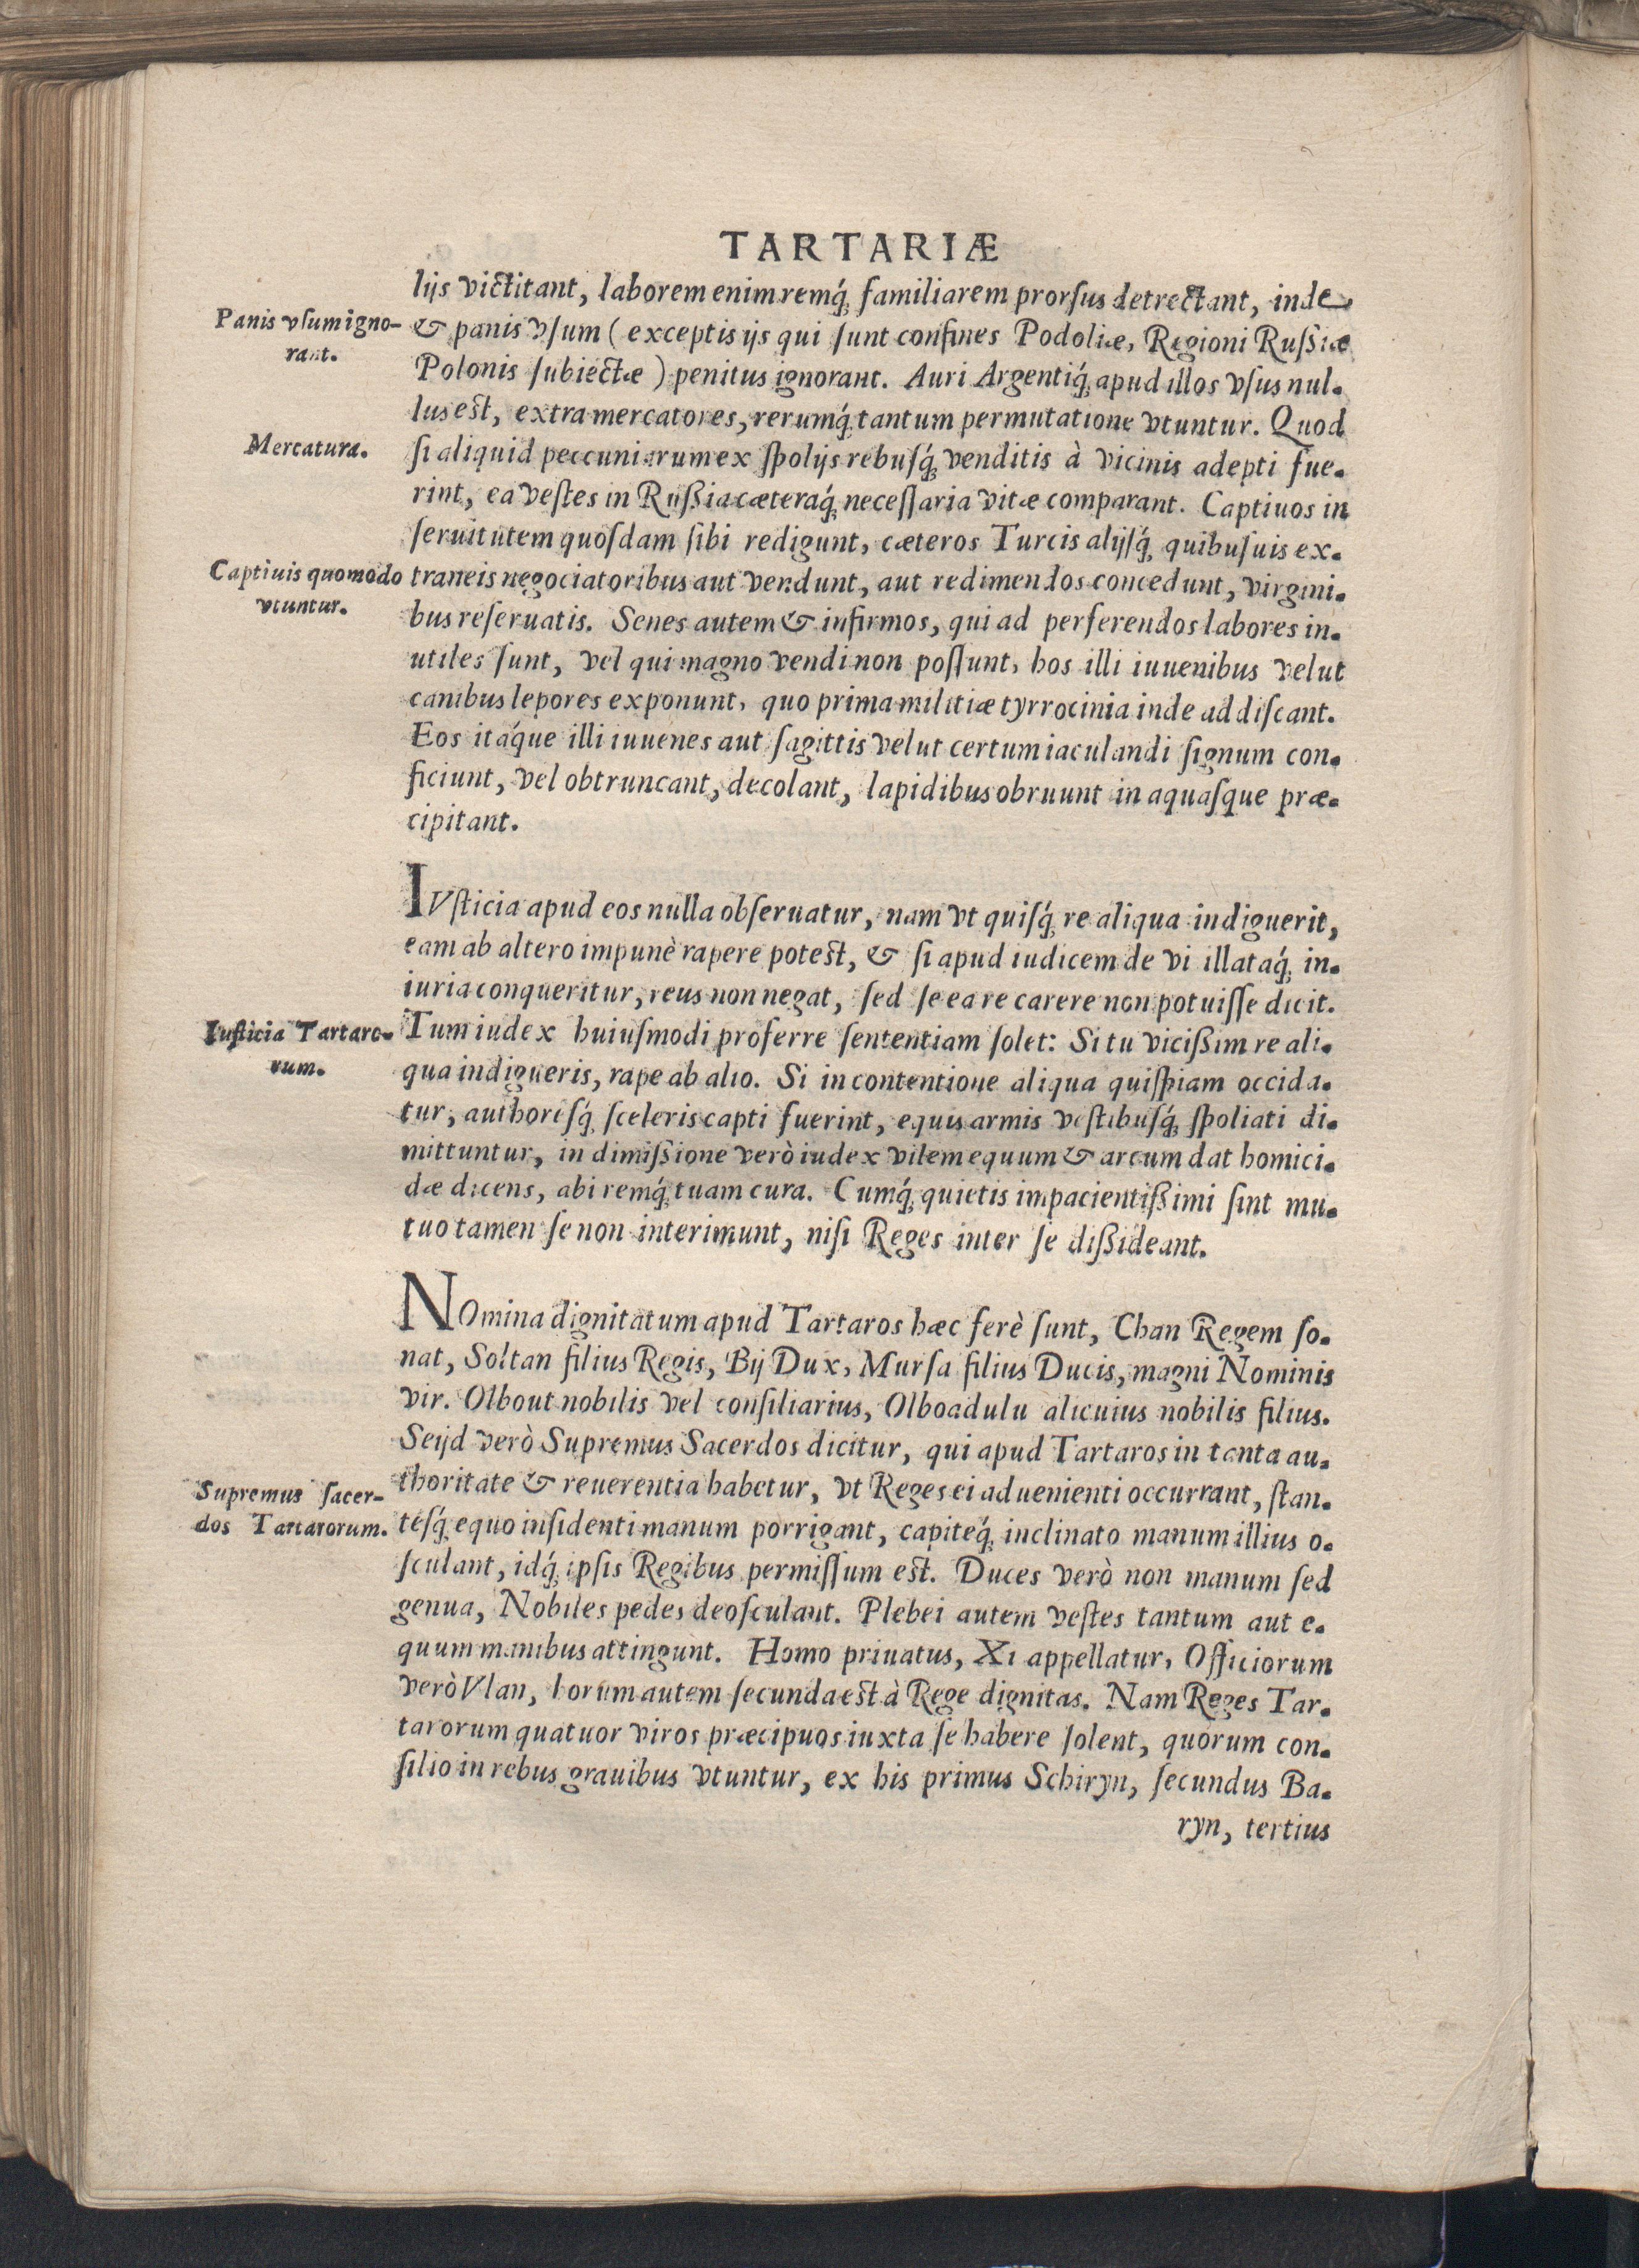 TARTARIÆ
lijs victitant, laborem enim remq́; familiarem prorſus detrectant, inde
Panis vſum igno-
rant.
& panis vſum ( exceptis ijs qui ſunt confines Podoliæ, Regioni Ruſsiæ
Polonis ſubiectæ ) penitus ignorant. Auri Argentiq́; apud illos vſus nul-
lus est, extra mercatores, rerumq́; tantum permutatione vtuntur. Quod
Mercatura.
ſi aliquid peccuniarum ex ſpolijs rebuſq́; venditis à vicinis adepti fue-
rint, ea veſtes in Rußia cæteraq́; neceſſaria vitæ comparant. Captiuos in
ſeruitutem quoſdam ſibi redigunt, cæteros Turcis alijſq́; quibuſuis ex-
Captiuis quomodo
vtuntur.
traneis negociatoribus aut vendunt, aut redimendos concedunt, virgini-
bus reſeruatis. Senes autem & infirmos, qui ad perferendos labores in-
utiles ſunt, vel qui magno vendi non poſſunt, hos illi iuuenibus velut
canibus lepores exponunt, quo prima militiæ tyrrocinia inde addiſcant.
Eos itáque illi iuuenes aut ſagittis velut certum iaculandi ſignum con-
ficiunt, vel obtruncant, decolant, lapidibus obruunt in aquaſque præ-
cipitant.
IVſticia apud eos nulla obſeruatur, nam vt quiſq́; re aliqua indiguerit,
eam ab altero impunè rapere potest, & ſi apud iudicem de vi illataq́; in-
iuria conqueritur, reus non negat, ſed ſe ea re carere non potuiſſe dicit.
Iuſticia Tartaro-
rum.
Tum iudex huiuſmodi proferre ſententiam ſolet: Si tu vicißim re ali-
qua indigueris, rape ab alio. Si in contentione aliqua quiſpiam occida-
tur, authoreſq́; ſceleris capti fuerint, equis armis veſtibuſq́; ſpoliati di-
mittuntur, in dimißione verò iudex vilem equum & arcum dat homici-
dæ dicens, abi remq́; tuam cura. Cumq́; quietis impacientißimi ſint mu-
tuo tamen ſe non interimunt, niſi Reges inter ſe dißideant.
NOmina dignitatum apud Tartaros hæc ferè ſunt, Chan Regem ſo-
nat, Soltan filius Regis, Bij Dux, Murſa filius Ducis, magni Nominis
vir. Olbout nobilis vel conſiliarius, Olboadulu alicuius nobilis filius.
Seijd verò Supremus Sacerdos dicitur, qui apud Tartaros in tanta au-
Supremus ſacer-
dos Tartarorum.
thoritate & reuerentia habetur, vt Reges ei aduenienti occurrant, ſtan-
teſq́; equo inſidenti manum porrigant, capiteq́; inclinato manum illius o-
ſculant, idq́; ipſis Regibus permiſſum est. Duces verò non manum ſed
genua, Nobiles pedes deoſculant. Plebei autem veſtes tantum aut e-
quum manibus attingunt. Homo priuatus, Xi appellatur, Officiorum
verò Vlan, horum autem ſecunda est à Rege dignitas. Nam Reges Tar-
tarorum quatuor viros præcipuos iuxta ſe habere ſolent, quorum con-
ſilio in rebus grauibus vtuntur, ex his primus Schiryn, ſecundus Ba-
ryn, tertius